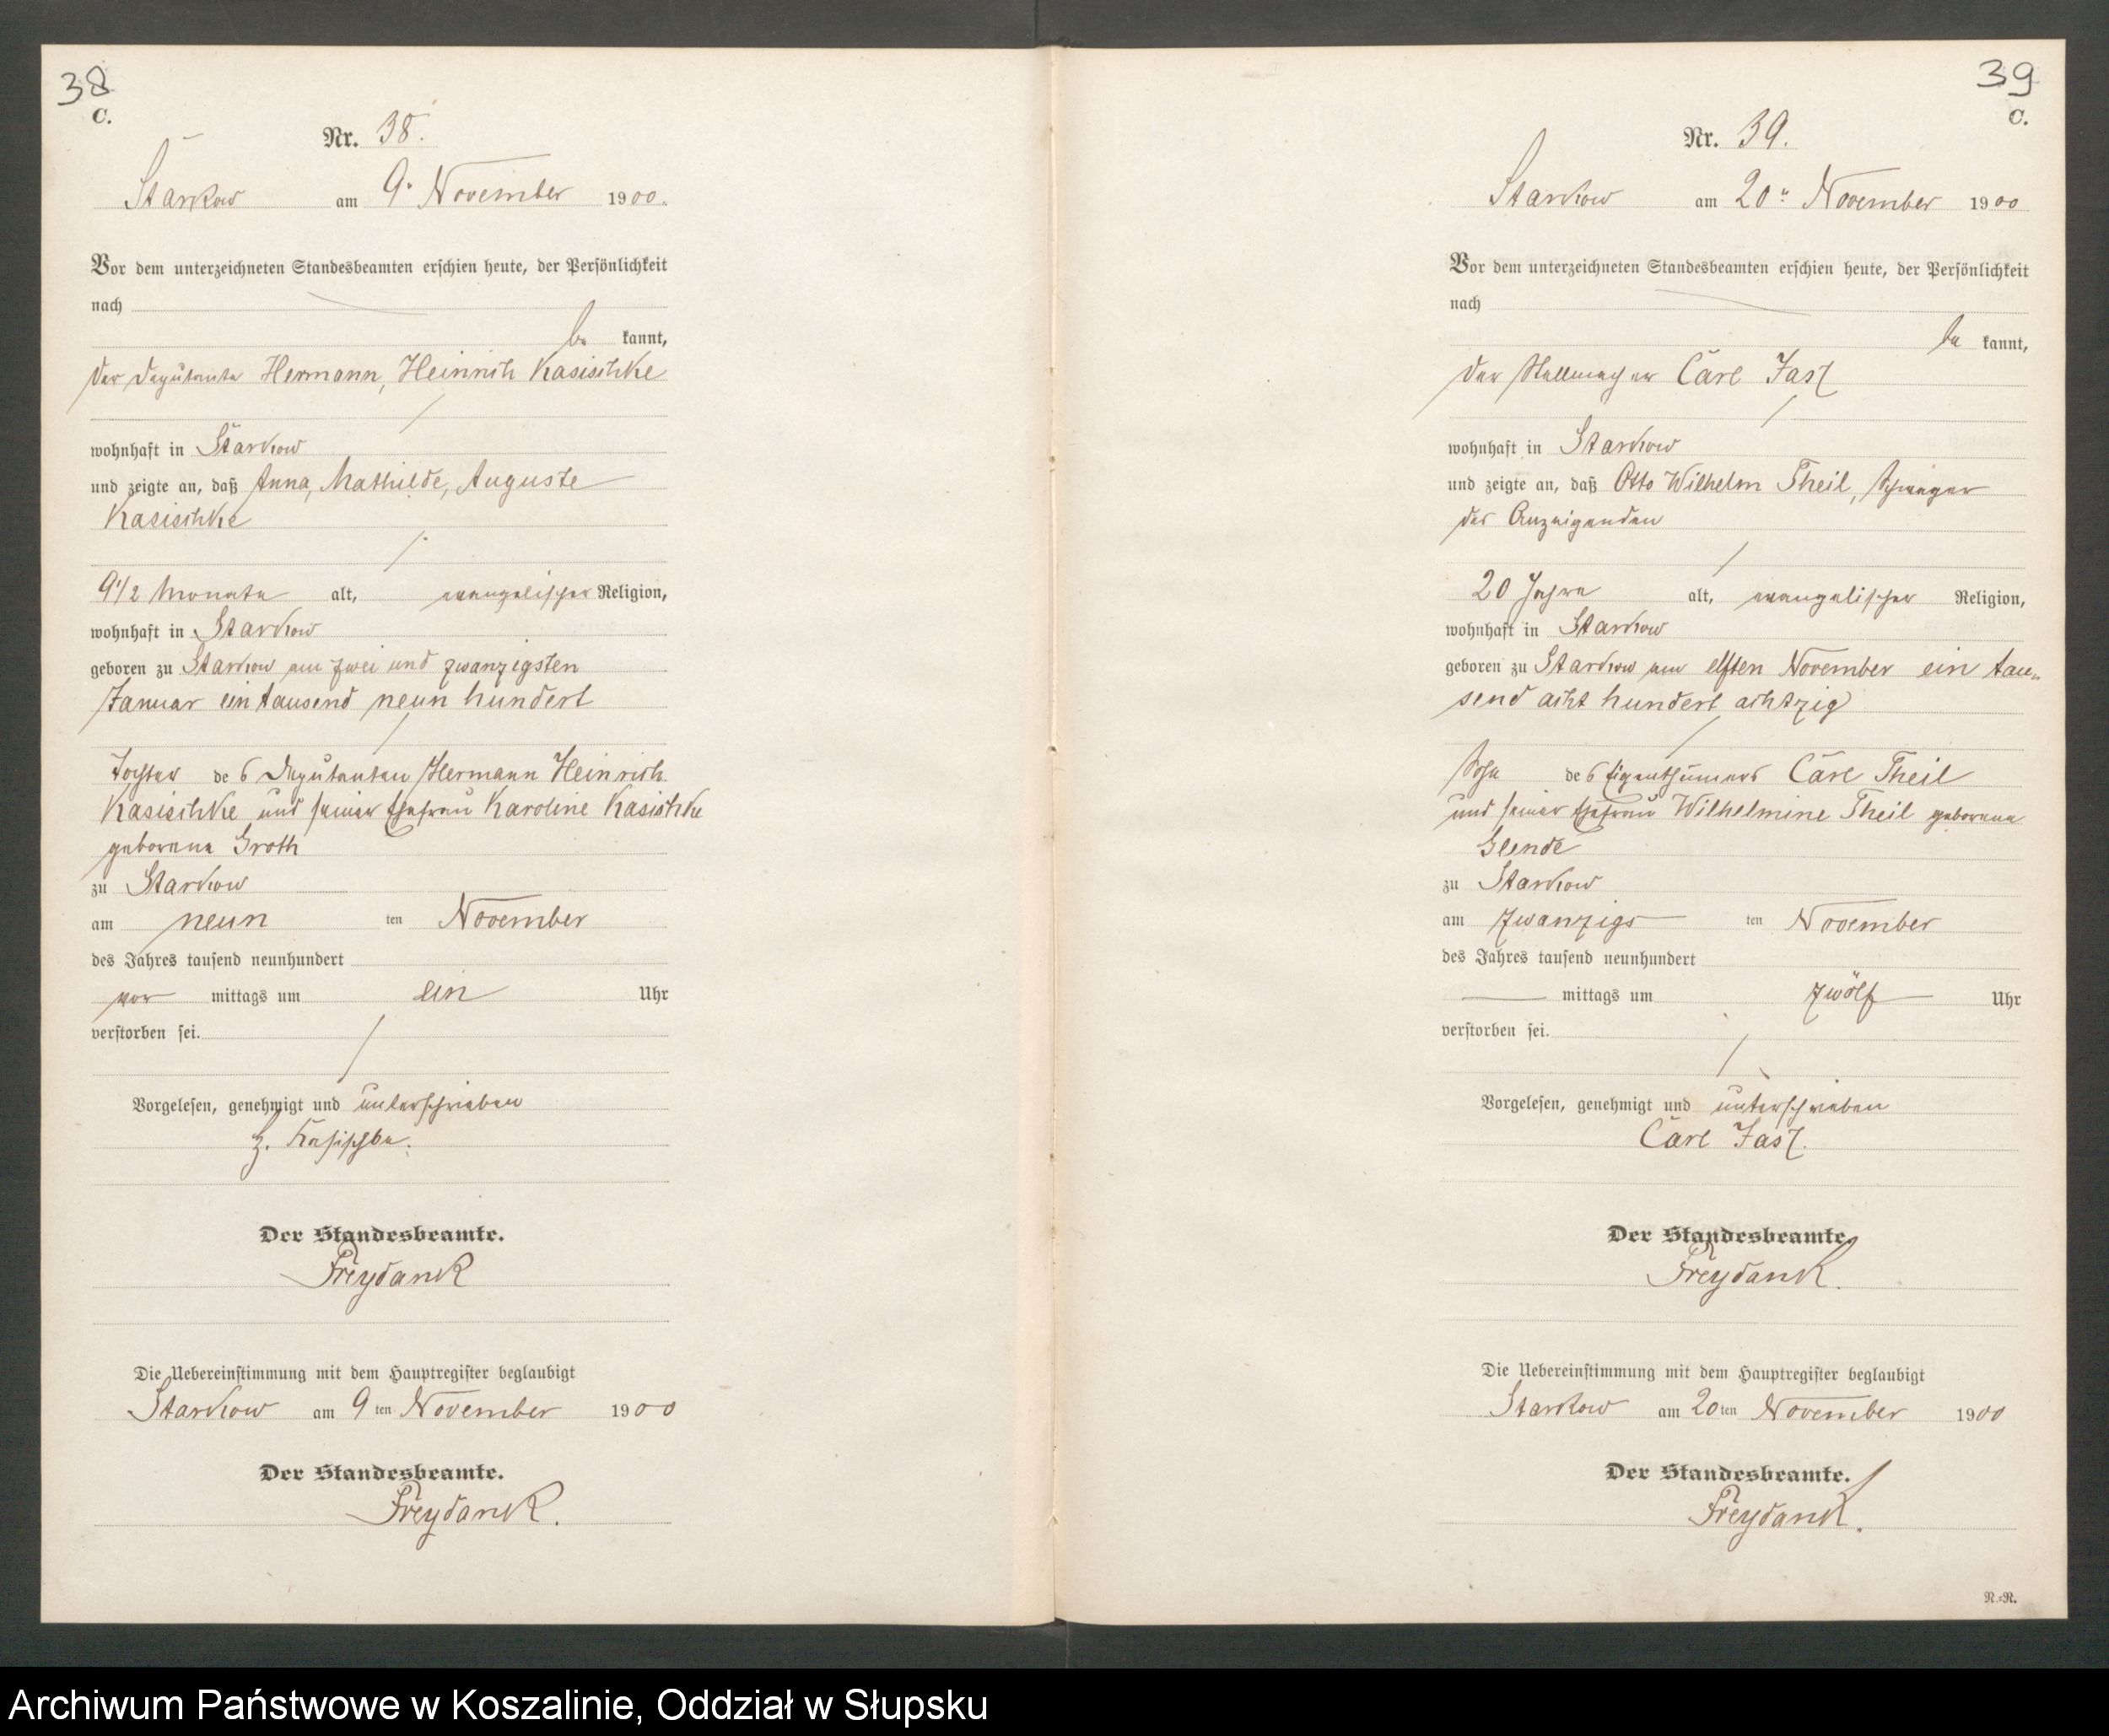 38
C.
Nr. 38.
Starkow am 9. November 1900.
Vor dem unterzeichneten Standesbeamten erschien heute, der Persönlichkeit
nach
be kannt,
der Deputante Hermann, Heinrich Kasischke
wohnhaft in Starkow
und zeigte an, daß Anna, Mathilde, Auguste
Kasischke
9 1/2 Monate alt, evangelischer Religion,
wohnhaft in Starkow
geboren zu Starkow am zwei und zwanzigsten
Januar ein tausend neun hundert
Tochter des Deputanten Hermann Heinrich
Kasischke und seiner Ehefrau Karoline Kasischke
geborene Groth
zu Starkow
am neun ten November
des Jahres tausend neunhundert
vor mittags um ein Uhr
verstorben sei.
Vorgelesen, genehmigt und unterschrieben
H. Kasischke.
Der Standesbeamte.
Freydank
Die Uebereinstimmung mit dem Hauptregister beglaubigt
Starkow am 9 ten November 1900
Der Standesbeamte.
Freydank.
39
C.
Nr. 39.
Starkow am 20n November 1900
Vor dem unterzeichneten Standesbeamten erschien heute, der Persönlichkeit
nach
be kannt,
der Stellmacher Carl Jast
wohnhaft in Starkow
und zeigte an, daß Otto Wilhelm Theil, Schwager
des Anzeigenden
20 Jahre alt, evangelischer Religion,
wohnhaft in Starkow
geboren zu Starkow am elften November ein tau-
send acht hundert achtzig
Sohn des Eigenthümers Carl Theil
und seiner Ehefrau Wilhelmine Theil geborene
Glende
zu Starkow
am zwanzigs ten November
des Jahres tausend neunhundert
mittags um zwölf Uhr
verstorben sei.
Vorgelesen, genehmigt und unterschrieben
Carl Jast.
Der Standesbeamte.
Freydank.
Die Uebereinstimmung mit dem Hauptregister beglaubigt
Starkow am 20ten November 1900
Der Standesbeamte.
Freydank.
N.=N.
Archiwum Państwowe w Koszalinie, Oddział w Słupsku